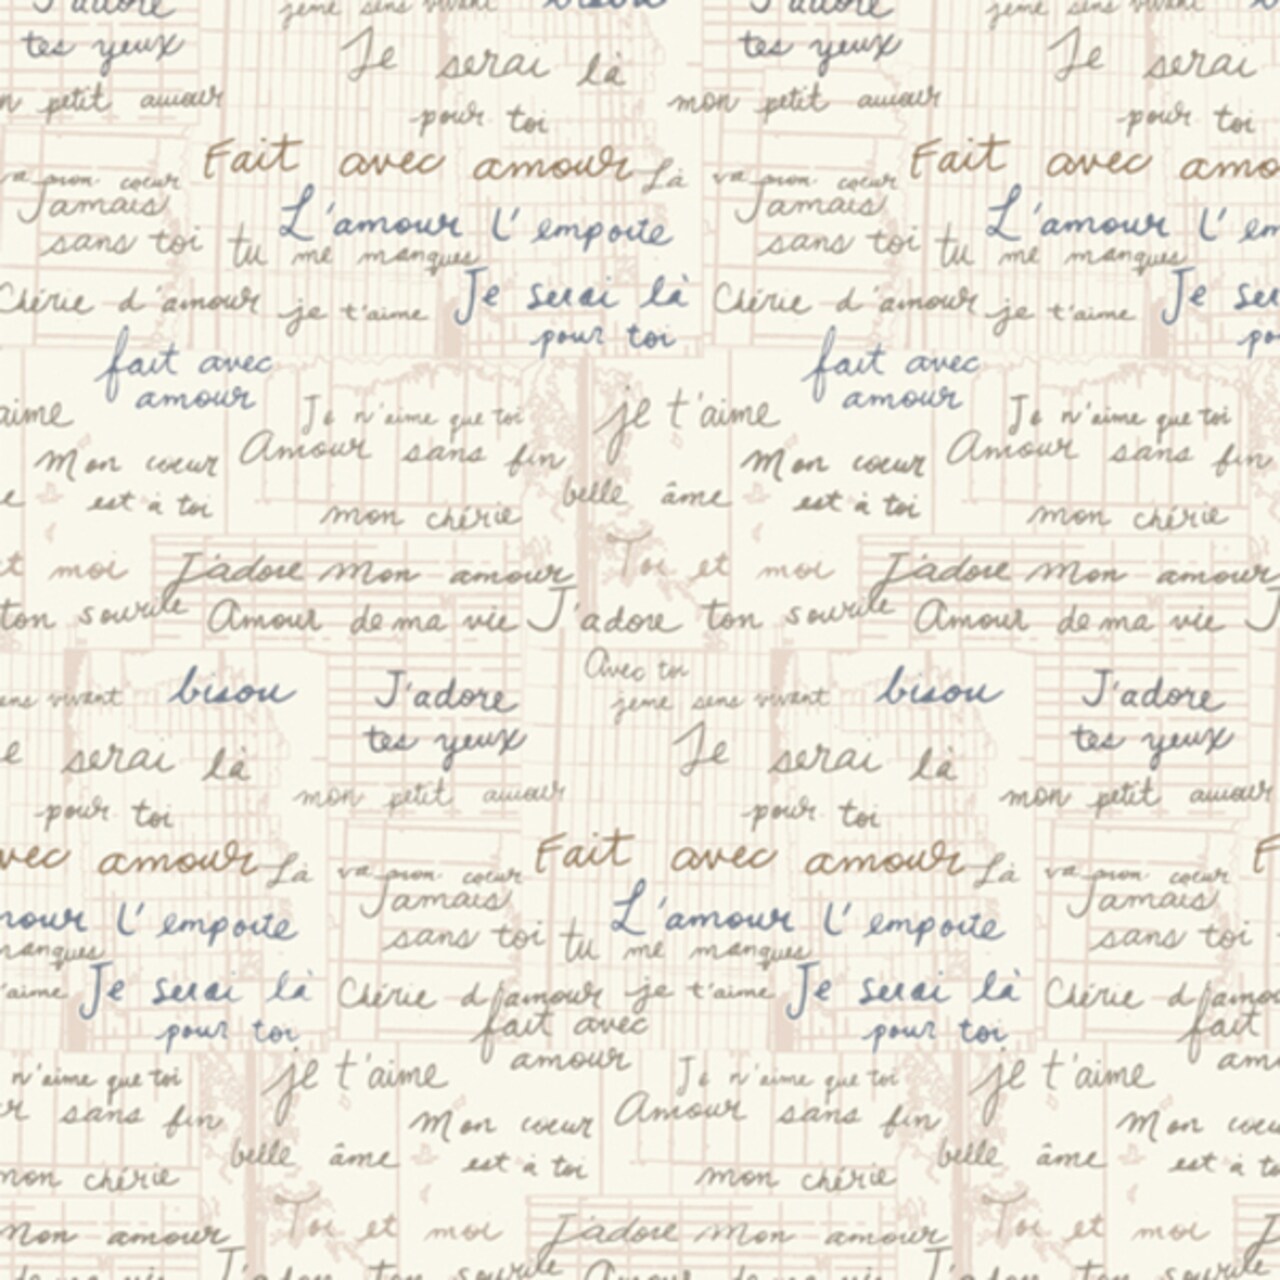 J'adore jeme sens vivant bisou J'adore jeme sens vivant
tes yeux Je serai là tes yeux Je serai
petit amour pour toi mon petit amour pour toi
Fait avec amour Là va mon coeur Fait avec
Jamais L'amour l'emporte Jamais L'amour
sans toi tu me manques sans toi tu me manques
Chérie d'amour je t'aime Je serai là Chérie d'amour je t'aime Je
pour toi
fait avec fait avec
amour amour
aime Je n'aime que toi je t'aime Je n'aime que toi
Mon coeur Amour sans fin Mon coeur Amour sans fin
est à toi belle âme est à toi
mon chérie mon chérie
et moi J'adore Mon amour Toi et moi J'adore Mon amour
ton sourire Amour de ma vie J'adore ton sourire Amour de ma vie
Avec toi
sens vivant bisou J'adore jeme sens vivant bisou J'adore
tes yeux tes yeux
serai là Je serai là
pour toi mon petit amour pour toi mon petit amour
avec amour Là va mon coeur Fait avec amour Là va mon coeur
l'emporte Jamais L'amour l'emporte Jamais
manques sans toi tu me manques sans toi
t'aime Je serai là Chérie d'amour je t'aime Je serai là Chérie
pour toi fait avec pour toi fait
amour
n'aime que toi je t'aime Je n'aime que toi je t'aime
sans fin Mon coeur Amour sans fin Mon
belle âme est à toi belle âme est à
mon chérie mon chérie
Mon amour Toi et moi J'adore Mon amour Toi et moi
J'adore ton sourire J'adore ton sourire